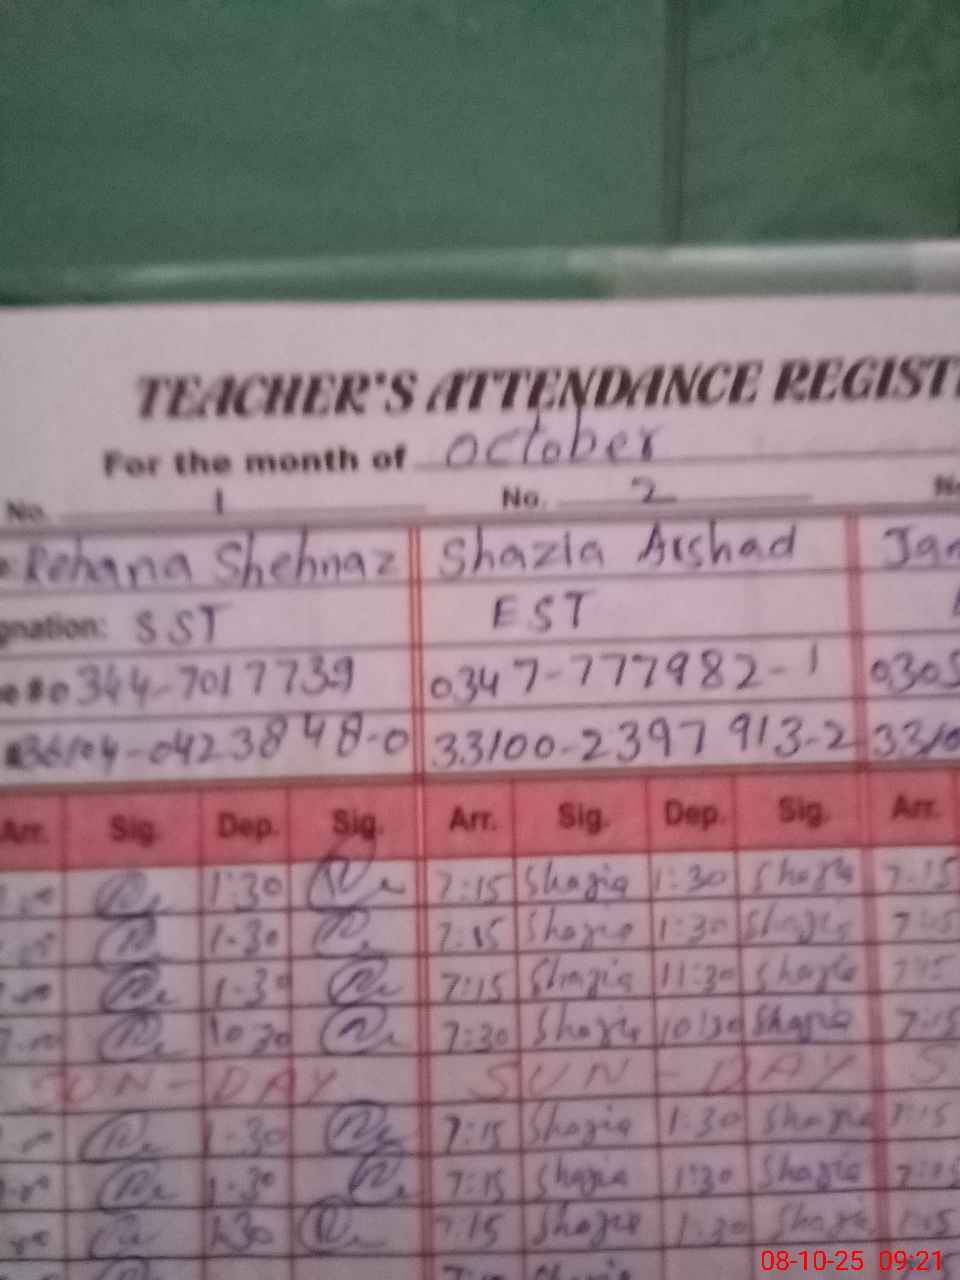 TEACHER'S ATTENDANCE REGIST
For the month of October
No. 1 No. 2 No
Rehana Shehnaz Shazia Arshad Jan
gnation: SST EST
0344-7017739 0347-777982-1 0305
36104-0423848-0 33100-2397913-2 3310
Arr. Sig. Dep. Sig. Arr. Sig. Dep. Sig. Arr.
1:30 7:15 Shazia 1:30 Shazia 7:15
1-30 7:15 Shazia 1:30 Shazia 7:15
1-30 7:15 Shazia 11:30 Shazia 7:15
10 30 7:30 Shazia 10:30 Shazia 7:15
SUN-DAY SUN-DAY S
1:30 7:15 Shazia 1:30 Shazia 7:15
1-30 7:15 Shazia 1:30 Shazia 7:15
1:30 7:15 Shazia 1:30 Shazia 7:15
08-10-25 09:21